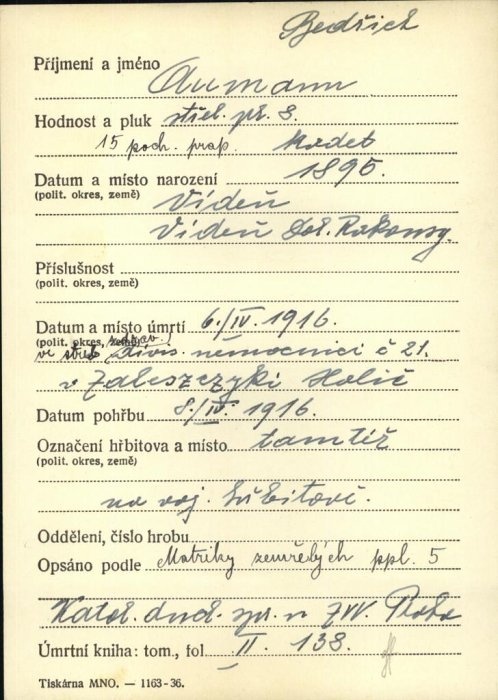 Bedřich
Příjmení a jméno Aumann
Hodnost a pluk střel. pr. 8.
15 poch. prap. kadet
Datum a místo narození 1895.
(polit. okres, země) Vídeň
Vídeň Dol. Rakousy.
Příslušnost
(polit. okres, země)
Datum a místo úmrtí 6./IV. 1916.
(polit. okres, země) zdrav.
ve střel. divis. nemocnici č 21.
v Zaleszczyki Halič
Datum pohřbu 8./IV. 1916.
Označení hřbitova a místo tamtéž
(polit. okres, země)
na voj. hřbitově.
Oddělení, číslo hrobu
Opsáno podle Matriky zemřelých ppl. 5
Katol. duch. spr. n ZVV. Praha
Úmrtní kniha: tom., fol II. 138.
Tiskárna MNO. — 1163-36.